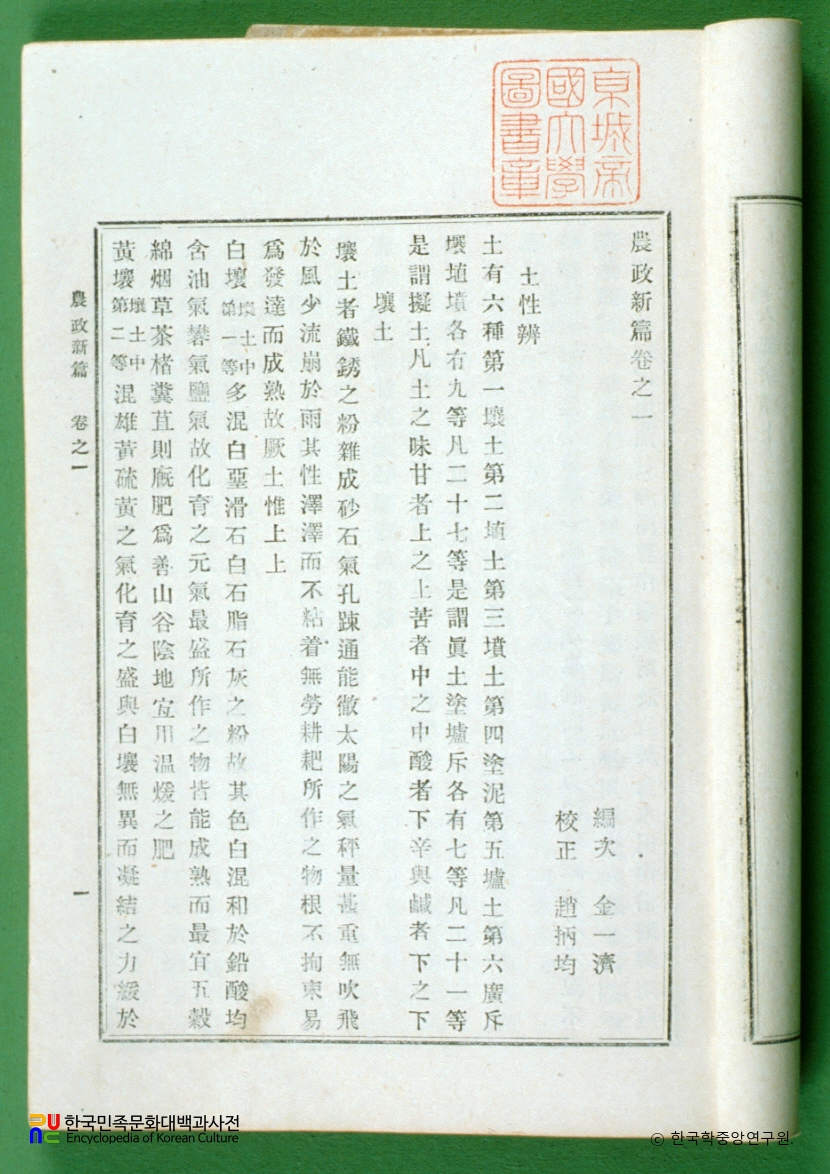 京城帝
國大學
圖書章
農政新篇卷之一
編次 金一濟
校正 趙炳均
土性辨
土有六種第一壤土第二埴土第三墳土第四塗泥第五壚土第六廣斥
壤埴墳各有九等凡二十七等是謂眞土塗壚斥各有七等凡二十一等
是謂擬土凡土之味甘者上之上苦者中之中酸者下辛與鹹者下之下
壤土
壤土者鐵銹之粉雜成砂石氣孔踈通能徹太陽之氣秤量甚重無吹飛
於風少流崩於雨其性澤澤而不粘着無勞耕耙所作之物根不拘束易
爲發達而成熟故厥土惟上上
白壤壤土中第一等多混白堊滑石白石脂石灰之粉故其色白混和於鉛酸均
含油氣礬氣鹽氣故化育之元氣最盛所作之物皆能成熟而最宜五穀
綿烟草茶楮糞苴則廐肥爲善山谷陰地宜用温煖之肥
黃壤壤土中第二等混雄黃硫黃之氣化育之盛與白壤無異而凝結之力緩於
農政新篇 卷之一 一
한국민족문화대백과사전
Encyclopedia of Korean Culture
© 한국학중앙연구원